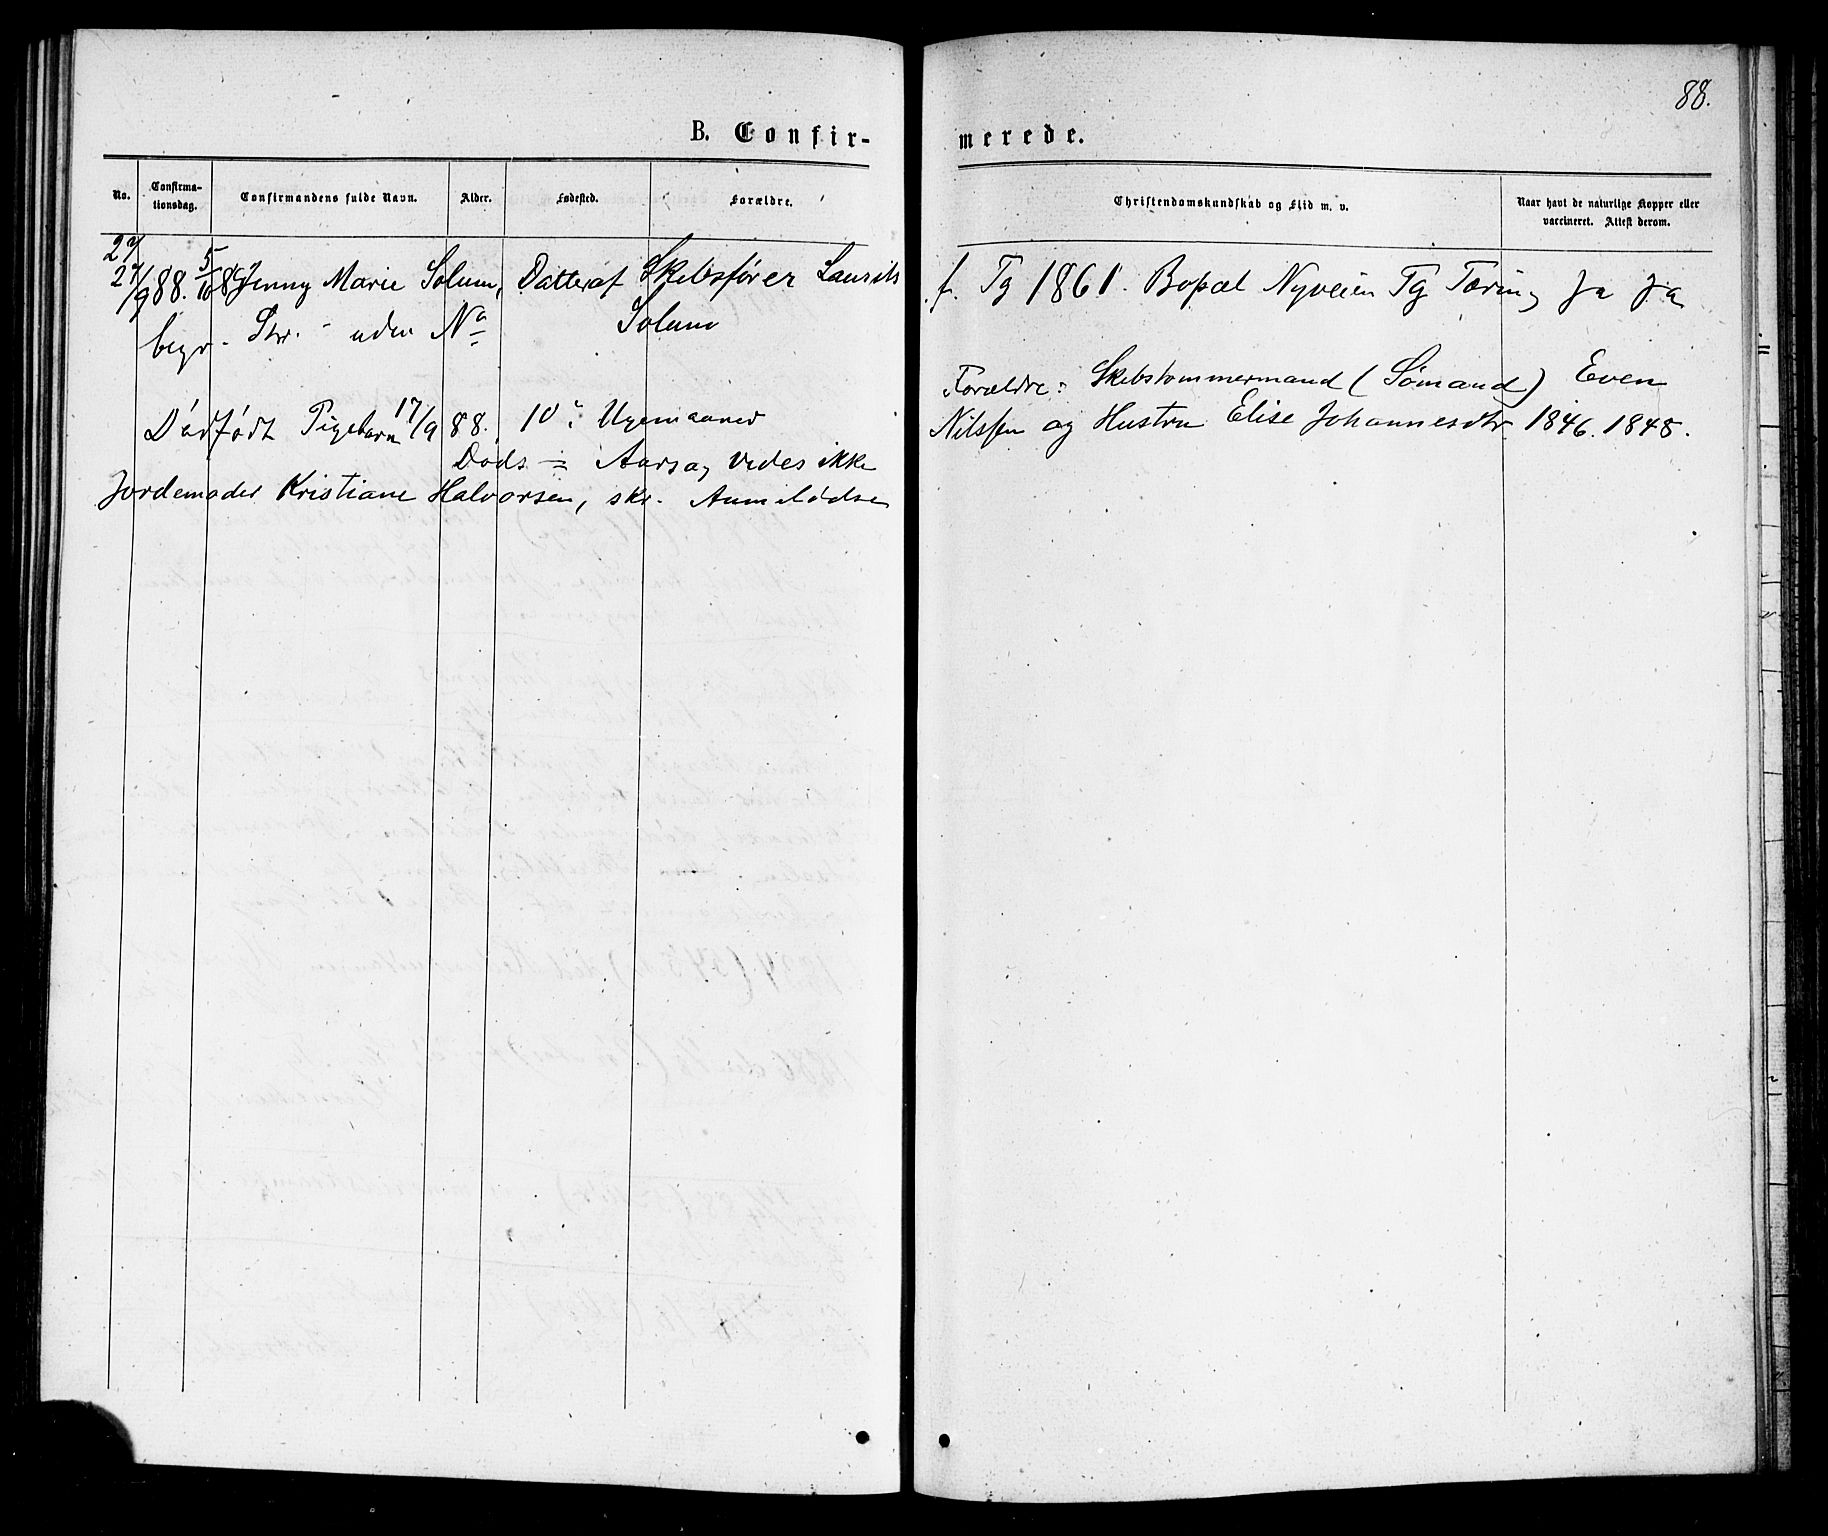 88.
B. Confir-
merede.
No.
Confirma-
tionsdag.
Confirmandens fulde Navn.
Alder.
Fødested.
Forældre.
Christendomskundskab og Flid m. v.
Naar havt de naturlige Kopper eller
vaccineret. Attest derom.
27
27/9 88. 5/10 88 Jenny Marie Solum, Datter af Skibsfører Laurits f. Tg 1861. Bopæl Nyveien Tg Tæring Ja Ja
begr. Str. - uden No Solum
Forældre: Skibstømmermand (Sømand) Even
Dødfødt Pigebarn 17/9 88. 10: Ugemaaned
Nilssen og Hustru Elise Johannesdtr. 1846. 1848.
Døds = Aarsag vides ikke
Jordemoder Kristiane Halvorsen, skr. Anmeldelse